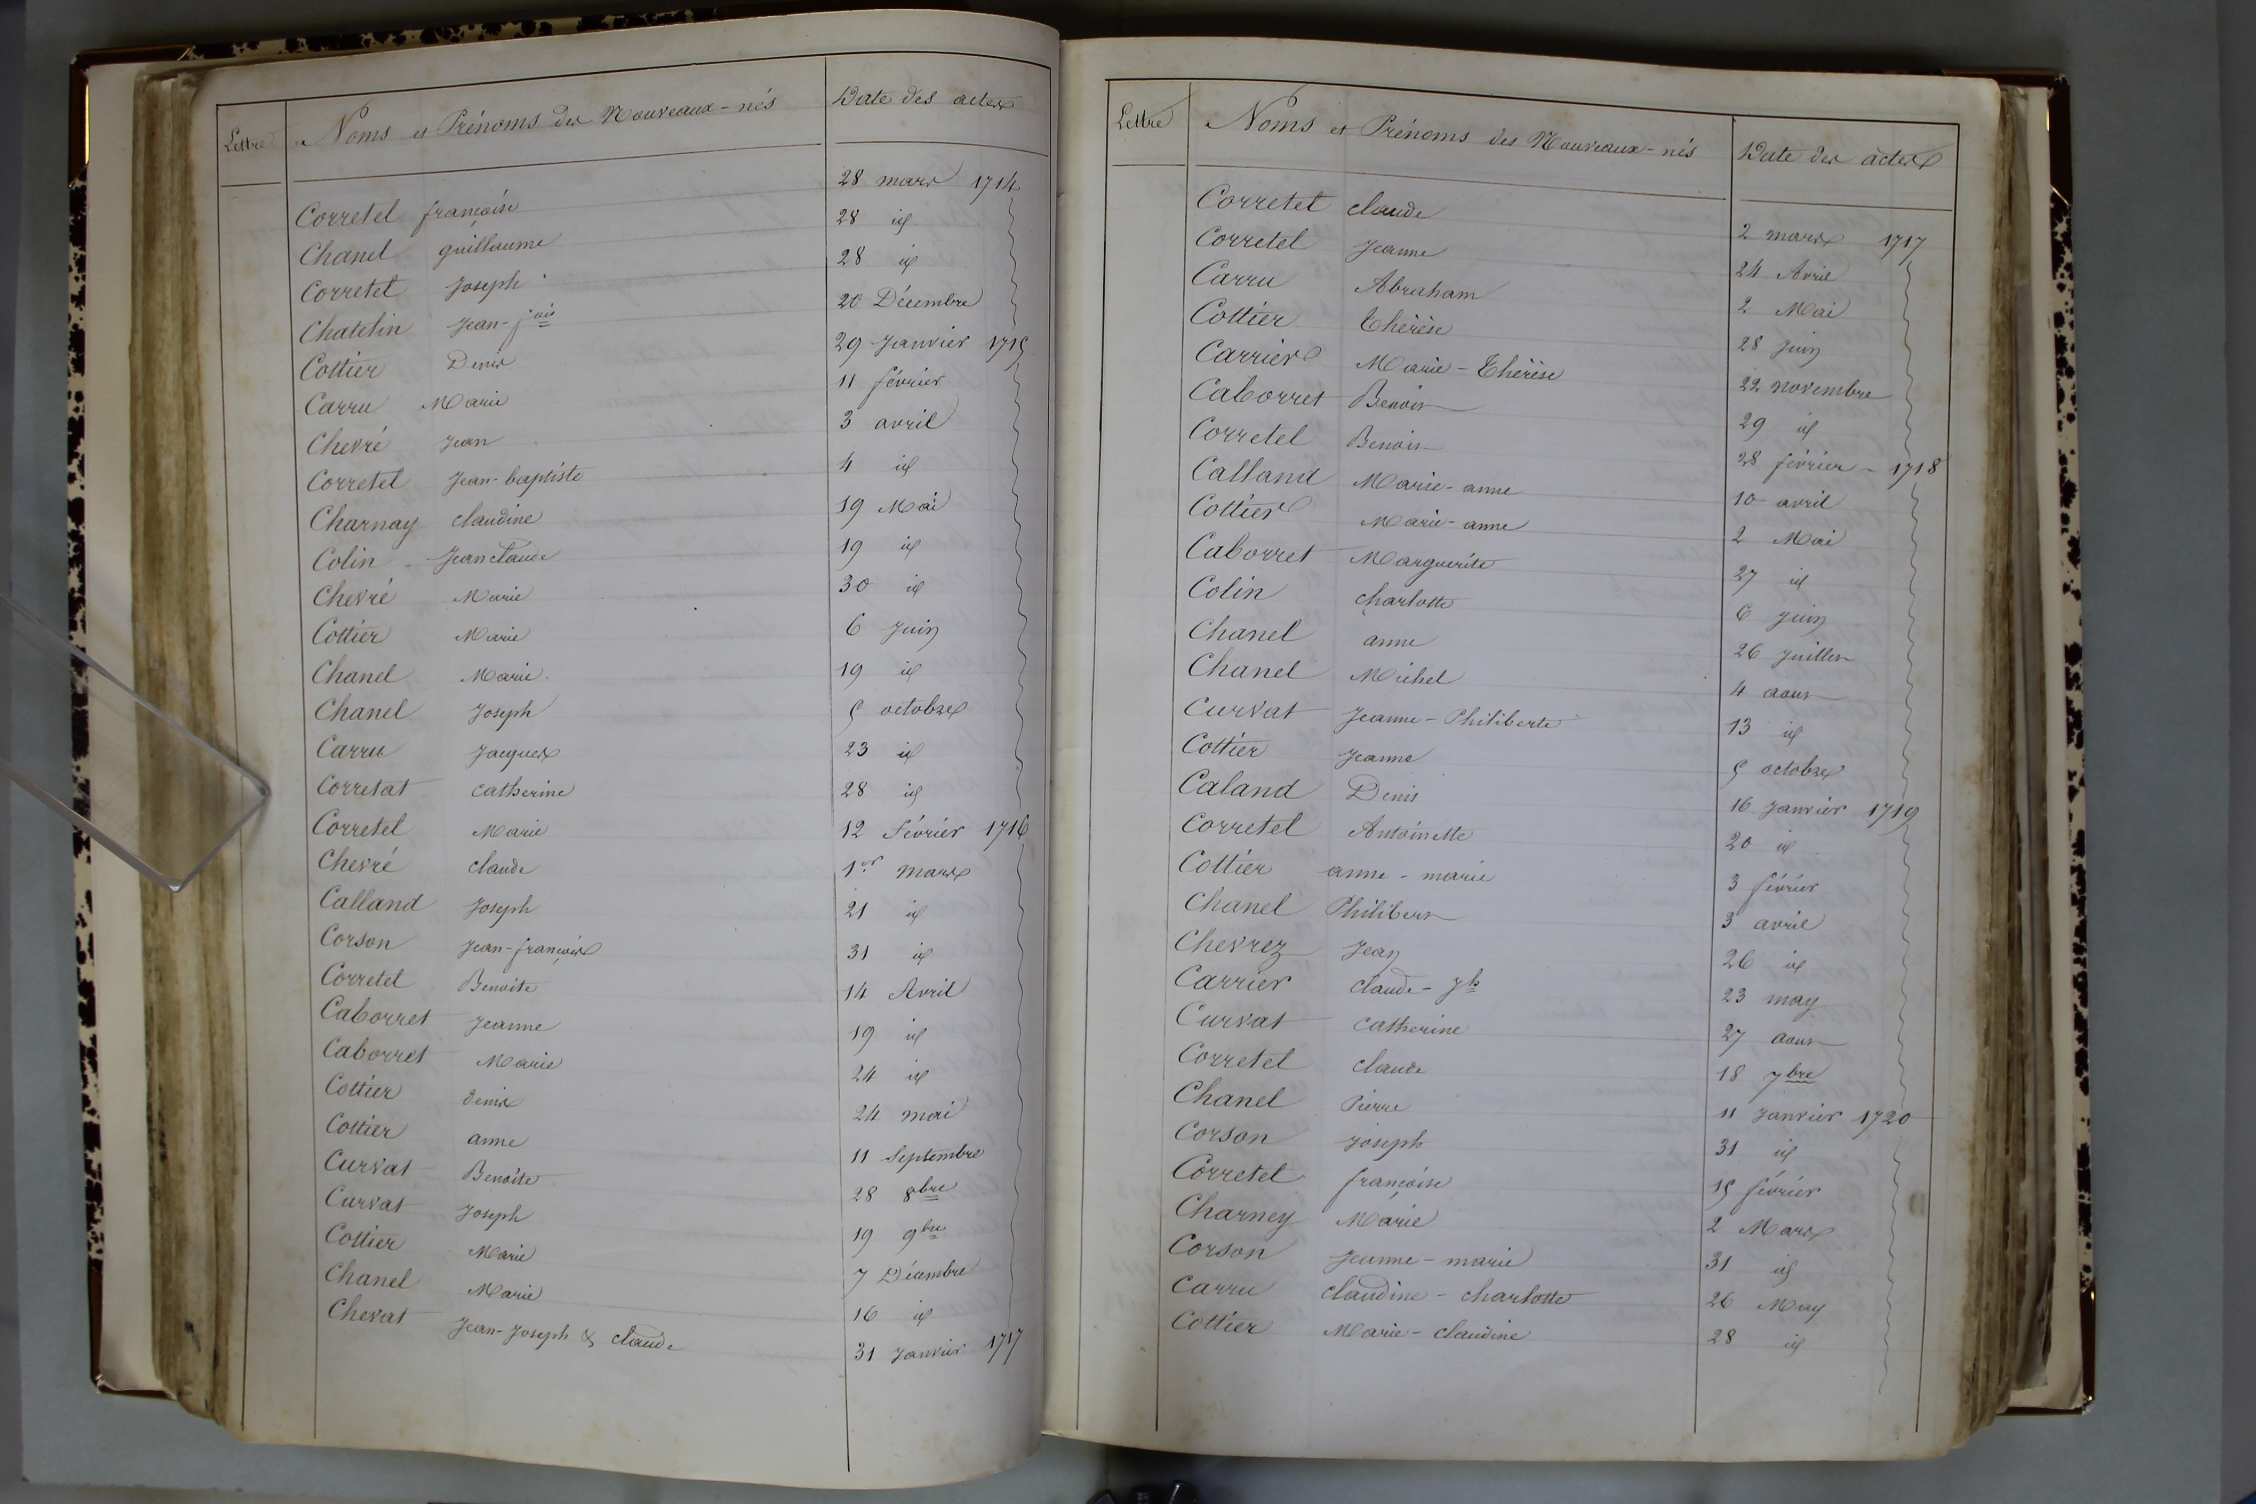 Lettre Noms et Prénoms des Nouveaux-nés Date des actes
Corretel françoise 28 mars 1714
Chanel guillaume 28 id
Corretel Joseph 28 id
Chatelin Jean-fois 20 Décembre
Cottier Denis 29 Janvier 1715
Carru Marie 11 février
Chevré Jean 3 avril
Corretel Jean-baptiste 4 id
Charnay claudine 19 Mai
Colin Jean claude 19 id
Chevré Marie 30 id
Cottier Marie 6 Juin
Chanel Marie 19 id
Chanel Joseph 5 octobre
Carru Jacques 23 id
Corretat catherine 28 id
Corretel Marie 12 février 1716
Chevré claude 1er mars
Calland Joseph 21 id
Corson Jean-françois 31 id
Corretel Benoite 14 Avril
Caborret Jeanne 19 id
Caborret Marie 24 id
Cottier denis 24 mai
Cottier anne 11 Septembre
Curvat Benoite 28 8bre
Curvat Joseph 19 9bre
Cottier Marie 7 Décembre
Chanel Marie 16 id
Chevat Jean-Joseph & claude 31 Janvier 1717
Lettre Noms et Prénoms des Nouveaux-nés Date des actes
Corretel claude 2 mars 1717
Corretel Jeanne 24 Avril
Carru Abraham 2 Mai
Cottier Thérèse 28 Juin
Carrier Marie-Thérèse 22 novembre
Caborret Benoit 29 id
Corretel Benoit 28 février 1718
Calland Marie-anne 10 avril
Cottier Marie-anne 2 Mai
Caborret Marguerite 27 id
Colin charlotte 6 Juin
Chanel anne 26 Juillet
Chanel Michel 4 aout
Curvat Jeanne-Philiberte 13 id
Cottier Jeanne 5 octobre
Caland Denis 16 Janvier 1719
Corretel Antoinette 20 id
Cottier anne-marie 3 février
Chanel Philibert 3 avril
Chevrez Jean 26 id
Carrier claude-Jh 23 may
Curvat catherine 27 aout
Corretel claude 18 7bre
Chanel Pierre 11 Janvier 1720
Corson Joseph 31 id
Corretel françoise 15 février
Charney Marie 2 Mars
Corson Jeanne-marie 31 id
Carru claudine-charlotte 26 May
Cottier Marie-claudine 28 id